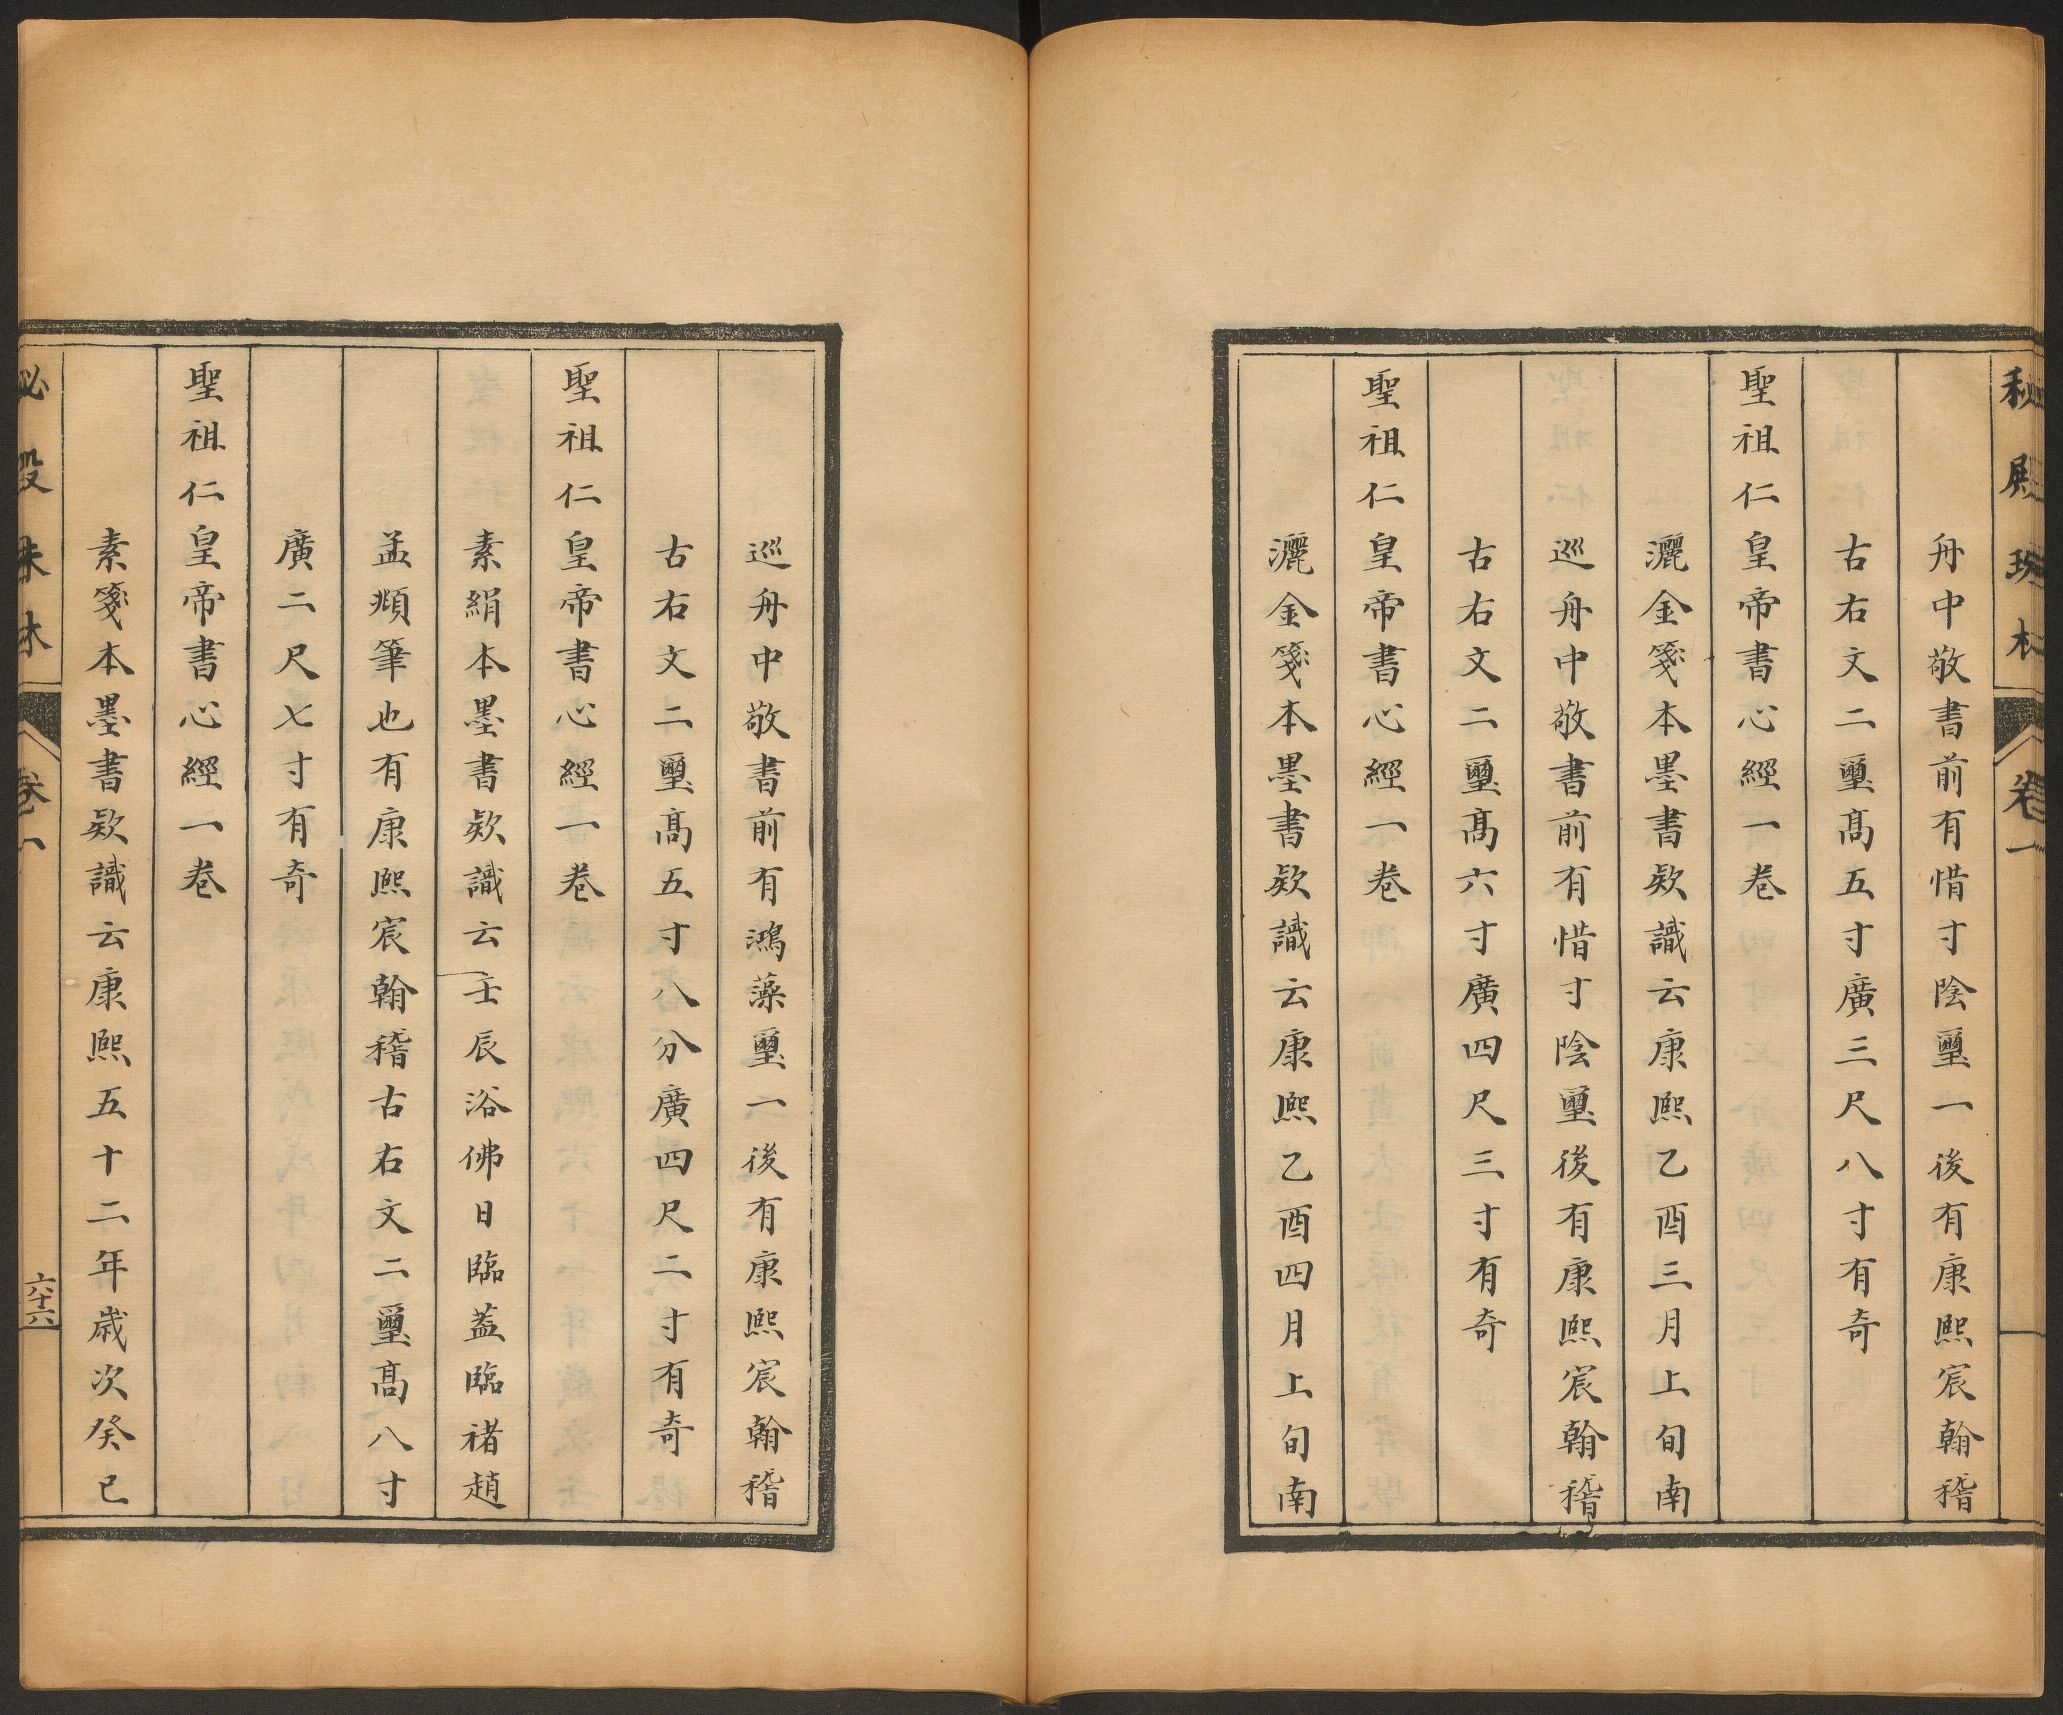 秘殿珠林 卷一
舟中敬書前有惜寸陰璽一後有康熙宸翰稽
古右文二璽高五寸廣三尺八寸有奇
聖祖仁皇帝書心經一卷
灑金箋本墨書欵識云康熙乙酉三月上旬南
巡舟中敬書前有惜寸陰璽後有康熙宸翰稽
古右文二璽高六寸廣四尺三寸有奇
聖祖仁皇帝書心經一卷
灑金箋本墨書欵識云康熙乙酉四月上旬南
巡舟中敬書前有鴻藻璽一後有康熙宸翰稽
古右文二璽高五寸八分廣四尺二寸有奇
聖祖仁皇帝書心經一卷
素絹本墨書欵識云壬辰浴佛日臨蓋臨褚趙
孟頫筆也有康熙宸翰稽古右文二璽高八寸
廣二尺七寸有奇
聖祖仁皇帝書心經一卷
素箋本墨書欵識云康熙五十二年歲次癸巳
秘殿珠林 卷一 六十六